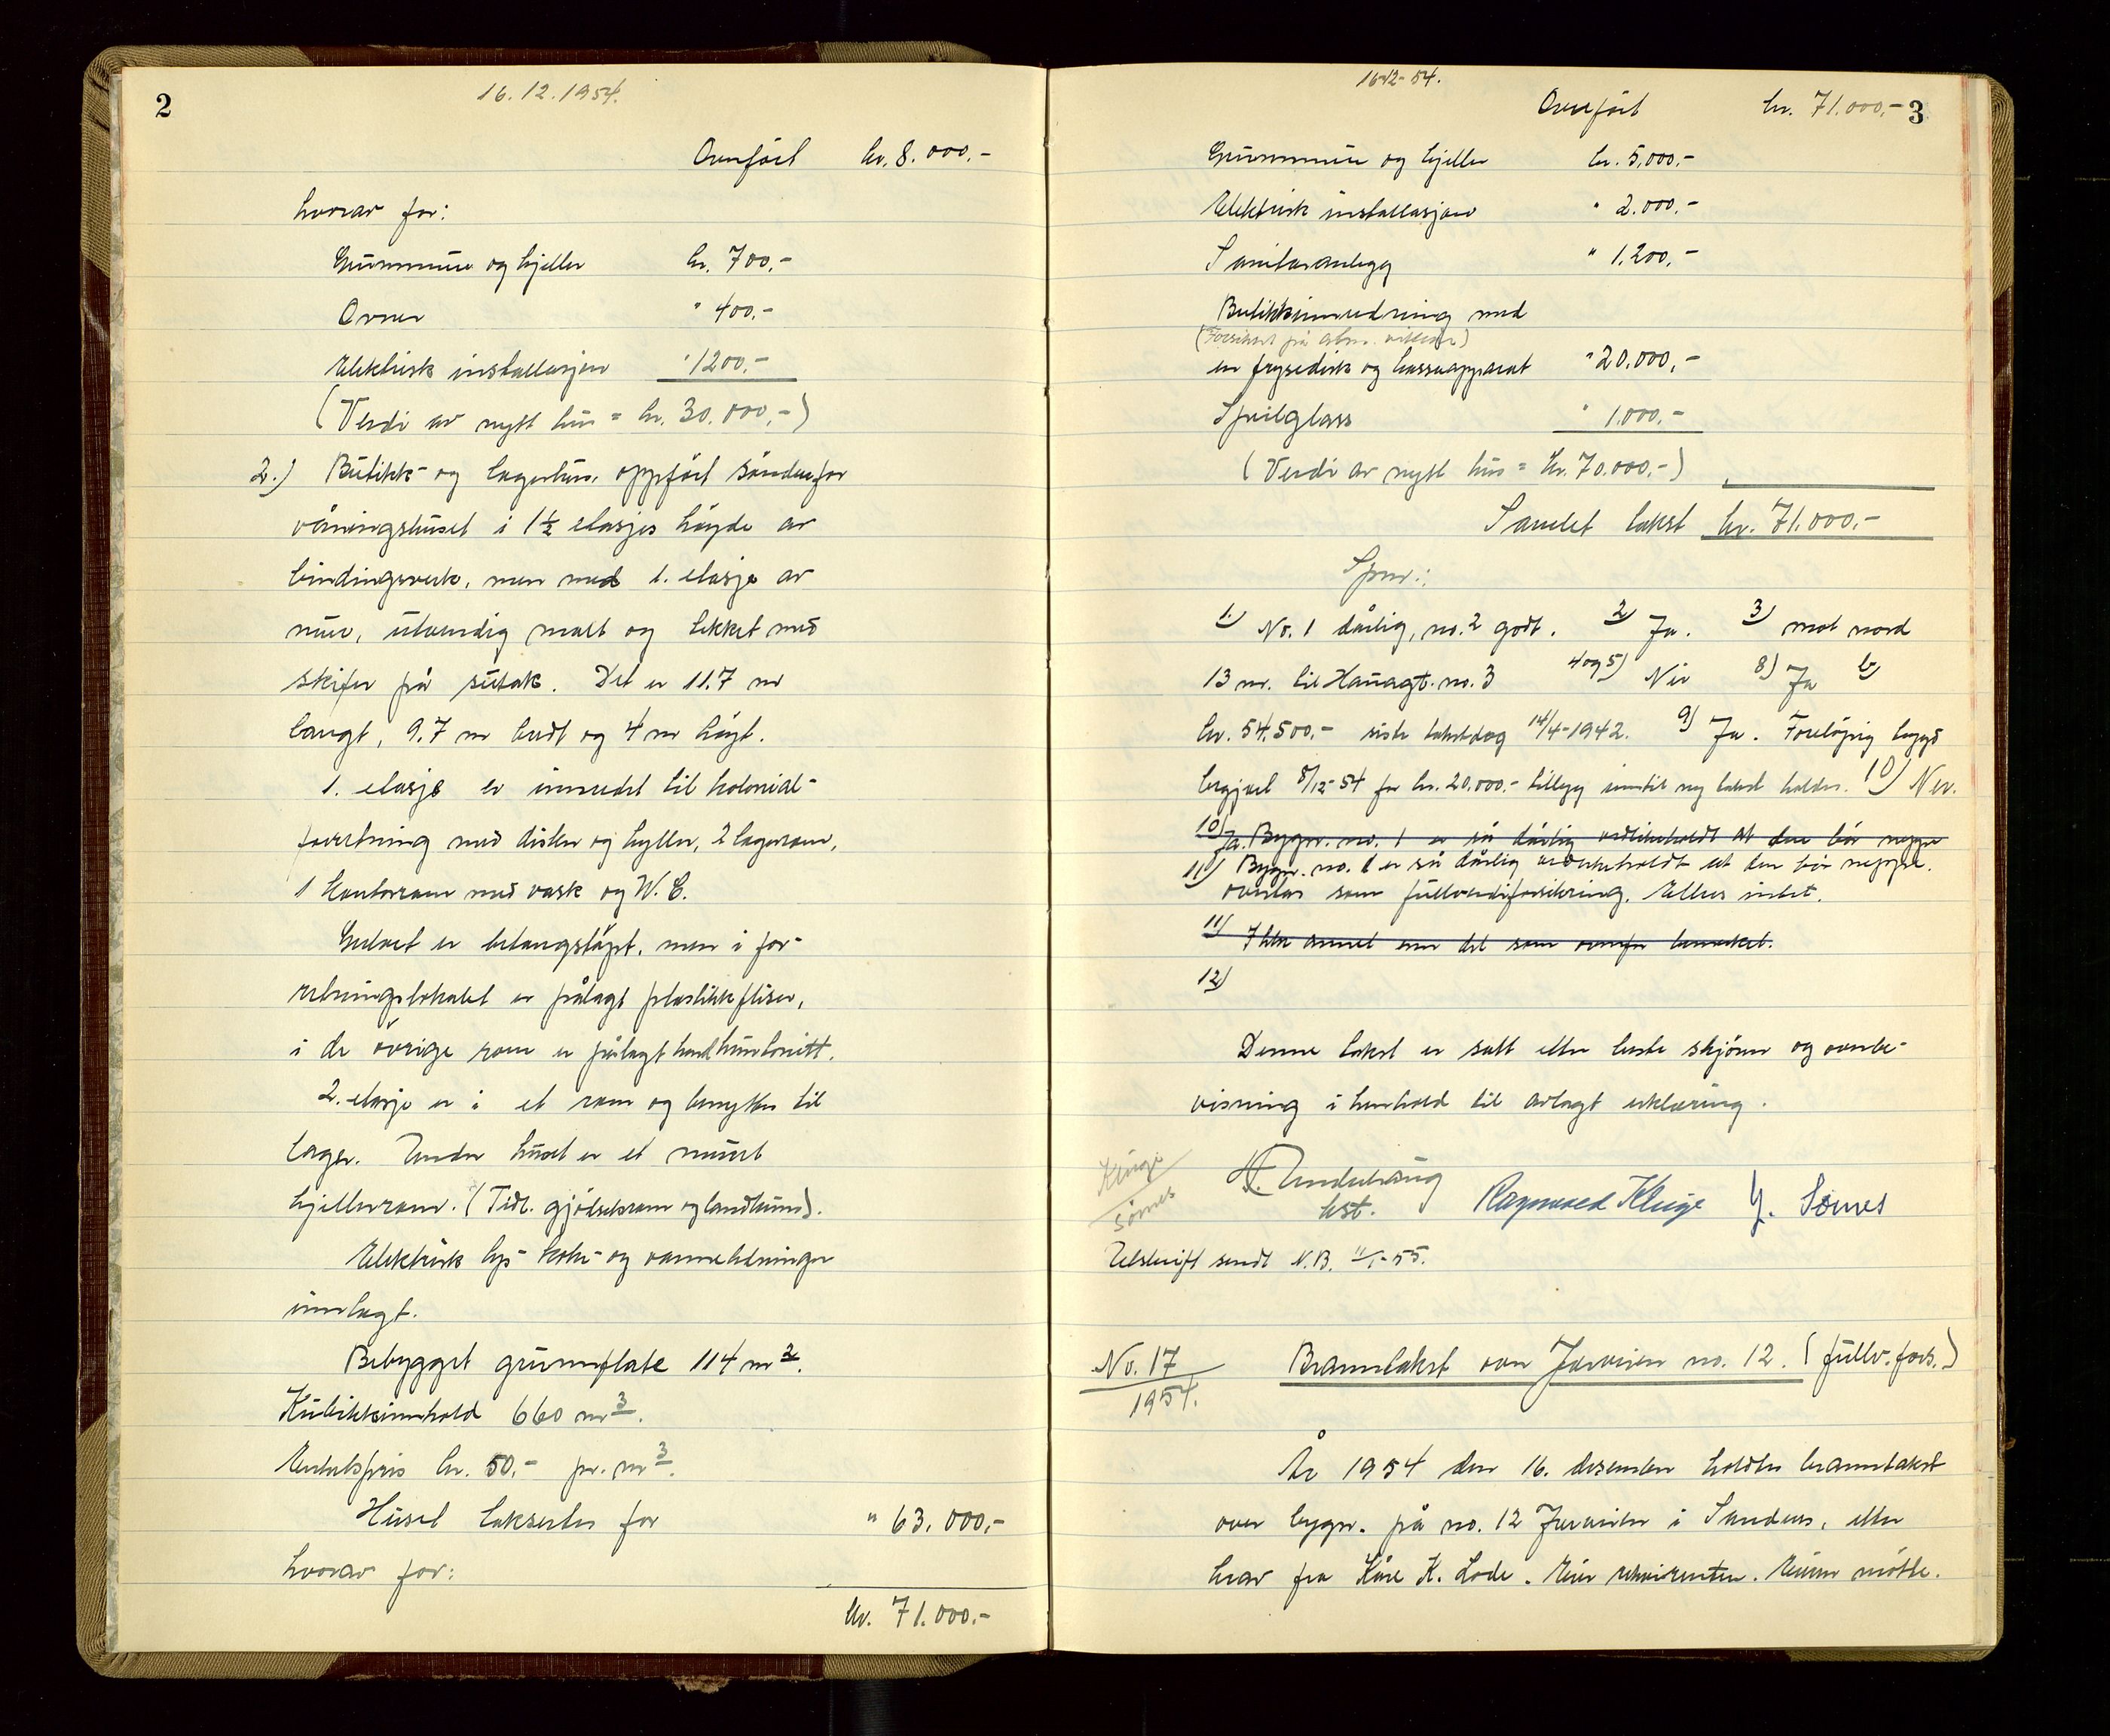 2
16.12.1954.
Overført kr. 8.000.-
hvorav for:
Grunnmur og kjeller kr. 700.-
Ovner " 400.-
Elektrisk installasjon " 1200.-
(Verdi av nytt hus = kr. 30.000.-)
2.) Butikk- og lagerhus, oppført sønnenfor
våningshuset i 1½ etasjes høyde av
bindingsverk, men med 1. etasje av
mur, utvendig malt og tekket med
skifer på sutak. Det er 11.7 m
langt, 9.7 m bredt og 4 m høyt.
1. etasje er innredet til kolonial-
forretning med disker og hyller, 2 lagerrom,
1 kontorrom med vask og W.C.
Gulvet er betongstøpt, men i for-
retningslokalet er pålagt plastikkfliser,
i de øvrige rom er pålagt
2. etasje er i et rom og benyttes til
lager. Under huset er et muret
kjellerrom. (Tidl. gjødselrom og landkum).
Elektrisk lys- koke- og varmeledninger
innlagt.
Bebygget grunnflate 114 m2.
Kubikkinnhold 660 m3.
Enhetspris kr. 50.- pr. m3.
Huset takseres for " 63.000.-
hvorav for:
kr. 71.000.-
16-12-54.
Overført kr. 71.000.- 3
Grunnmur og kjeller kr. 5.000.-
Elektrisk installasjon " 2.000.-
Sanitæranlegg " 1.200.-
Butikkinnredning med
(Forsikret på alm. vilkår)
en frysedisk og kasseapparat " 20.000.-
Speilglass " 1.000.-
(Verdi av nytt hus = kr. 70.000.-)
Samlet takst kr. 71.000.-
Spm:
1.) No. 1 dårlig, no. 2 godt. 2) Ja. 3) mot nord
13 m. til Hauagt. no. 3 4 og 5) Nei 8) Ja b)
kr. 54.500.- siste takstdag 14/4-1942. 9) Ja. Foreløpig
begjært 8/12-54 for kr. 20.000.- tillegg inntil ny takst holdes. 10) Nei.
10) Ja. Bygn. no. 1 er så dårlig vedlikeholdt at den bør neppe
11) Bygn. no. 1 er så dårlig vedlikeholdt at den bør neppe
overtas som fullverdiforsikring. Ellers intet.
11) Ikke annet enn det som ovenfor bemerket.
12)
Denne takst er satt etter beste skjønn og overbe-
visning i henhold til avlagt erklæring.
Kluge
Sømes
kst. Raymond Kluge Y. Sømes
Utskrift sendt N.B. 11/1-55.
No. 17
1954.
Branntakst over Jærveien no. 12. (fullv. fors.)
År 1954 den 16. desember holdtes branntakst
over bygn. på no. 12 Jærveien i Sandnes, etter
krav fra Kåre K. Lode. Eier rekvirenten. Eieren møtte.